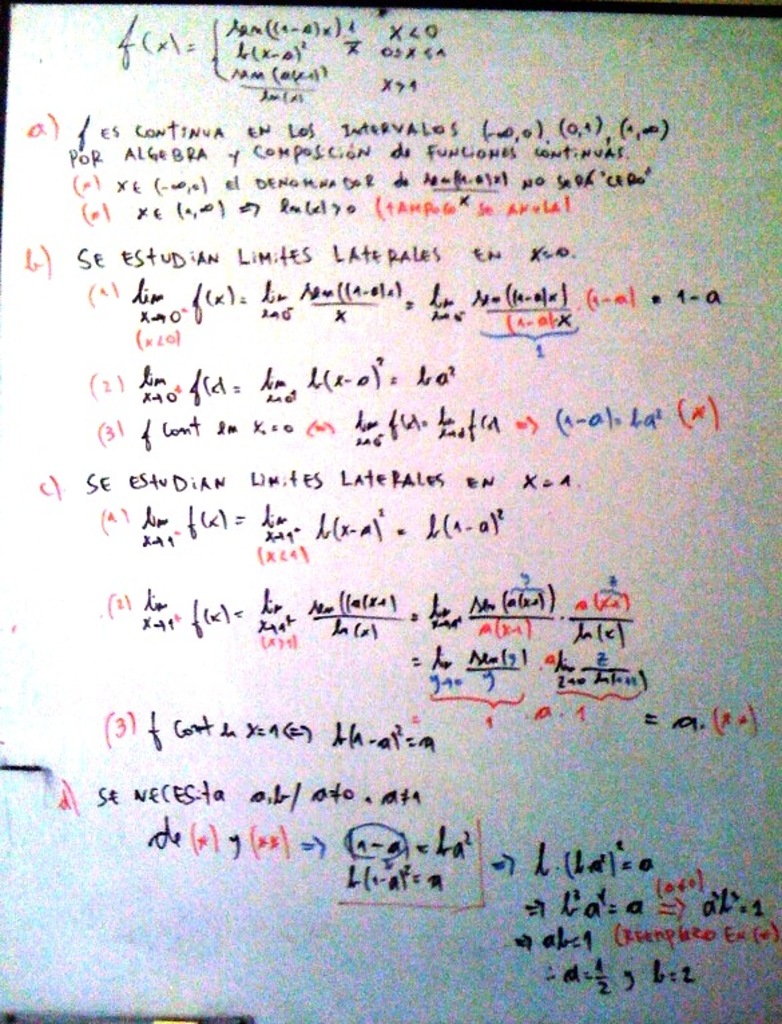 f(x) = { sen((1-a)x) 1/x   x<0
b(x-a)²   0≤x≤1
sen(a(x-1))/ln(x)   x>1
a) f ES CONTINUA EN LOS INTERVALOS (-∞,0), (0,1), (1,∞)
POR ALGEBRA Y COMPOSICIÓN de FUNCIONES CONTINUAS.
x∈(-∞,0) el DENOMINADOR de sen((1-a)x)/x NO SERÁ "CERO"
x∈(1,∞) ⇒ ln(x)>0 (TAMPOCO SE ANULA)
b) SE ESTUDIAN LIMITES LATERALES EN X=0.
(1) lim x→0⁻ f(x) = lim x→0⁻ sen((1-a)x)/x = lim x→0⁻ sen((1-a)x)/((1-a)·x) · (1-a) = 1-a
(x<0) 1
(2) lim x→0⁺ f(x) = lim x→0⁺ b(x-a)² = ba²
(3) f cont en x=0 ⇔ lim x→0⁻ f(x) = lim x→0⁺ f(x) ⇒ (1-a) = ba² (*)
c) SE ESTUDIAN LIMITES LATERALES EN X=1.
(1) lim x→1⁻ f(x) = lim x→1⁻ b(x-a)² = b(1-a)²
(x<1)
(2) lim x→1⁺ f(x) = lim x→1⁺ sen((a(x-1))/ln(x) = lim x→1⁺ sen(a(x-1))/a(x-1) · a(x-1)/ln(x)
(x>1) y z
= lim y→0 sen(y)/y · a lim z→0 z/ln(1+z)
= 1 · a · 1 = a. (**)
(3) f cont en x=1 ⇔ b(1-a)² = a
d) SE NECESITA a,b/ a≠0, a≠1
de (*) y (**) ⇒ (1-a) = ba²
b(1-a)² = a
⇒ b·(ba²)² = a
⇒ b³a⁴ = a ⇒ a³b³ = 1
(a≠0)
⇒ ab=1 (REEMPLAZO EN (*)
∴ a=1/2 y b=2